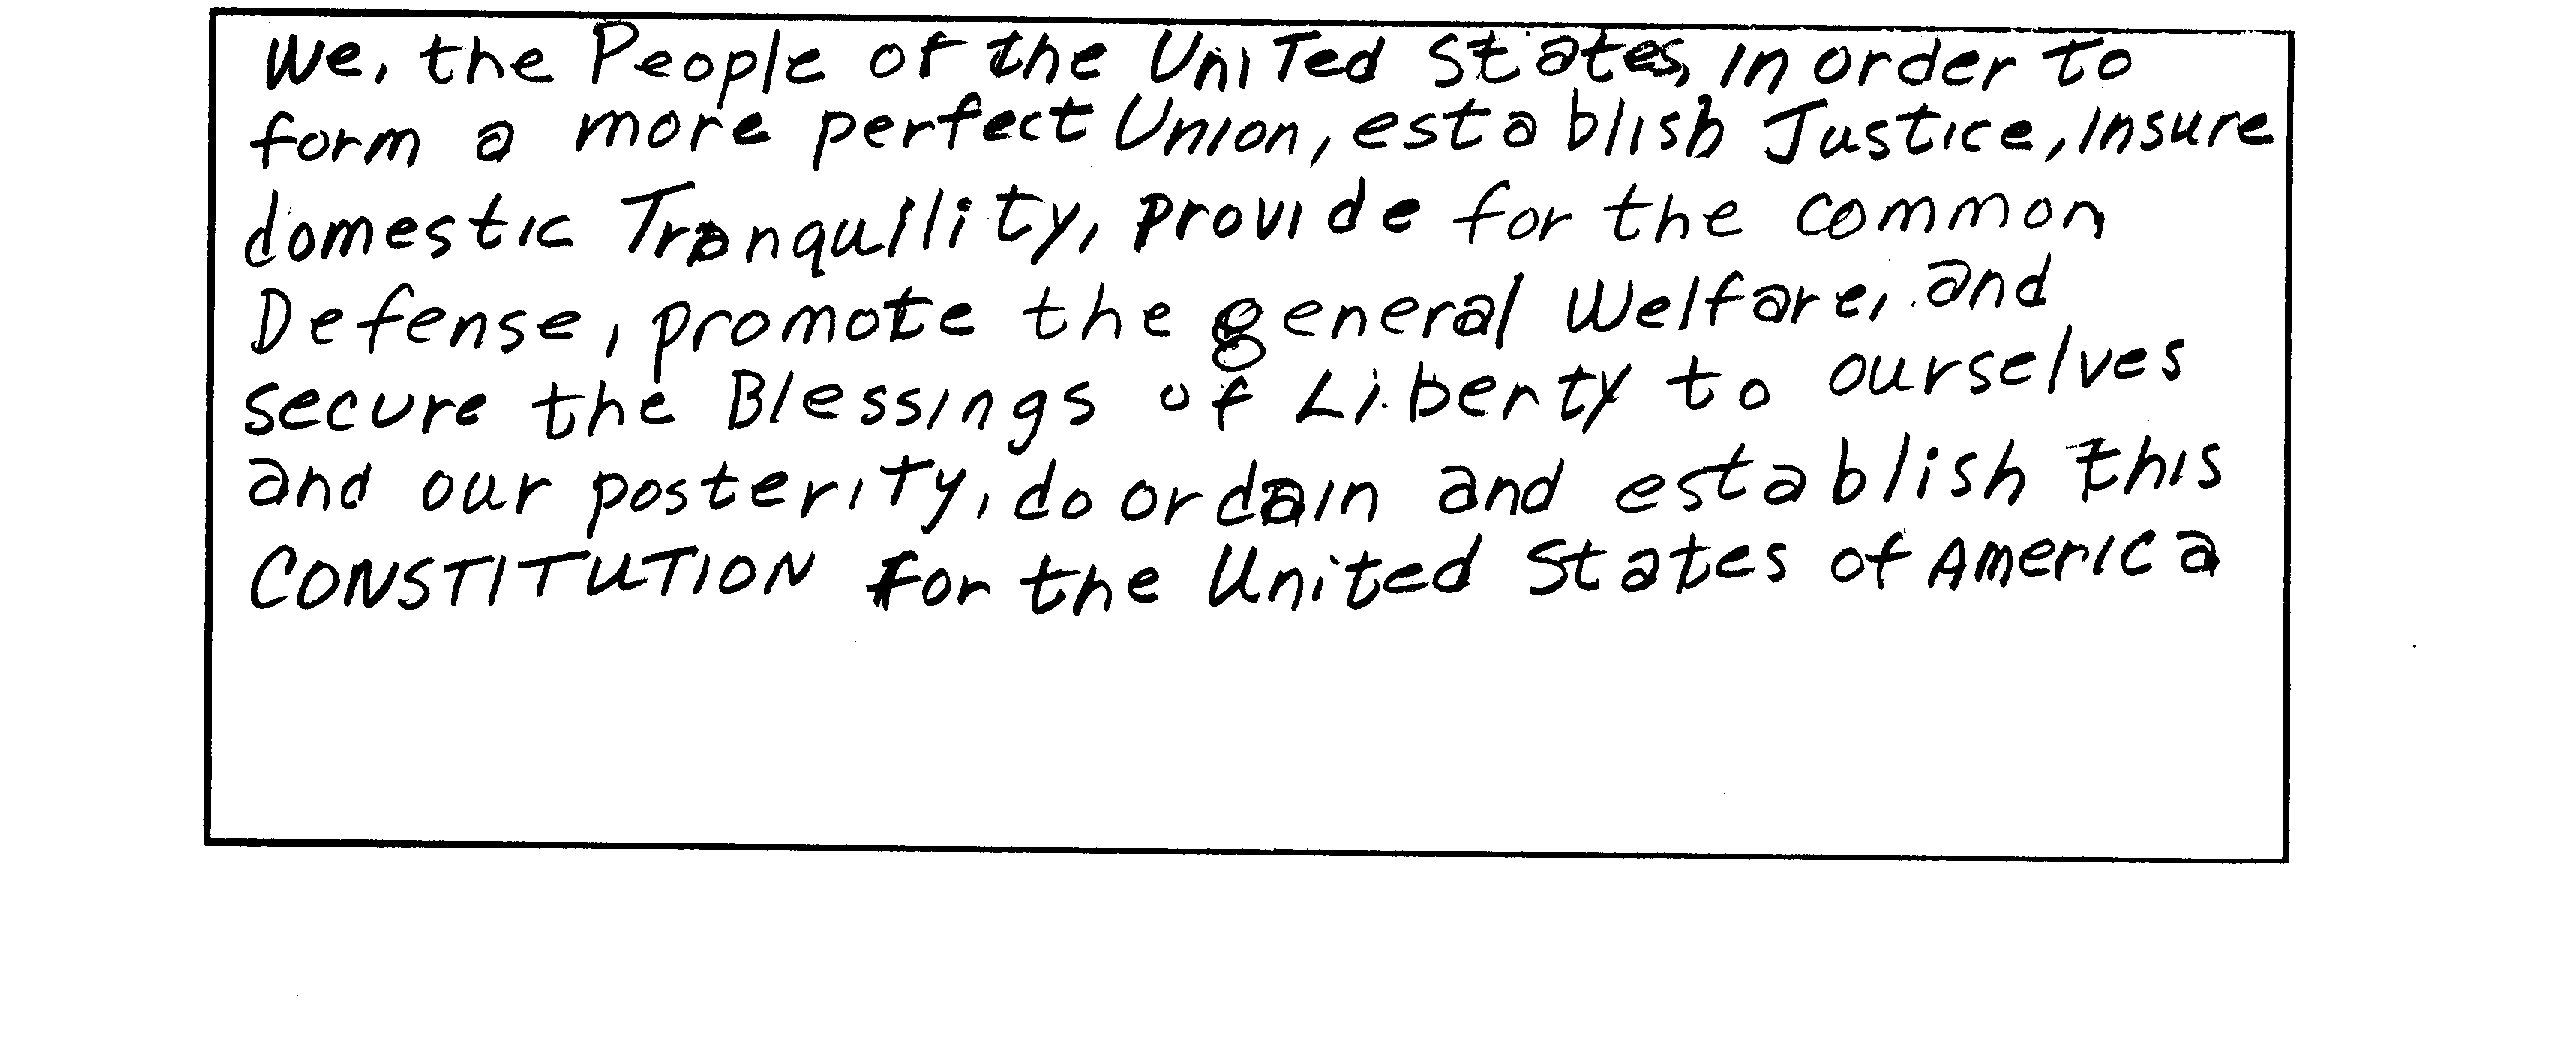 We, the People of the United States, in order to
form a more perfect Union, establish Justice, insure
domestic Tranquility, provide for the common
Defense, promote the general Welfare, and
secure the Blessings of Liberty to ourselves
and our posterity, do ordain and establish this
CONSTITUTION for the United States of America